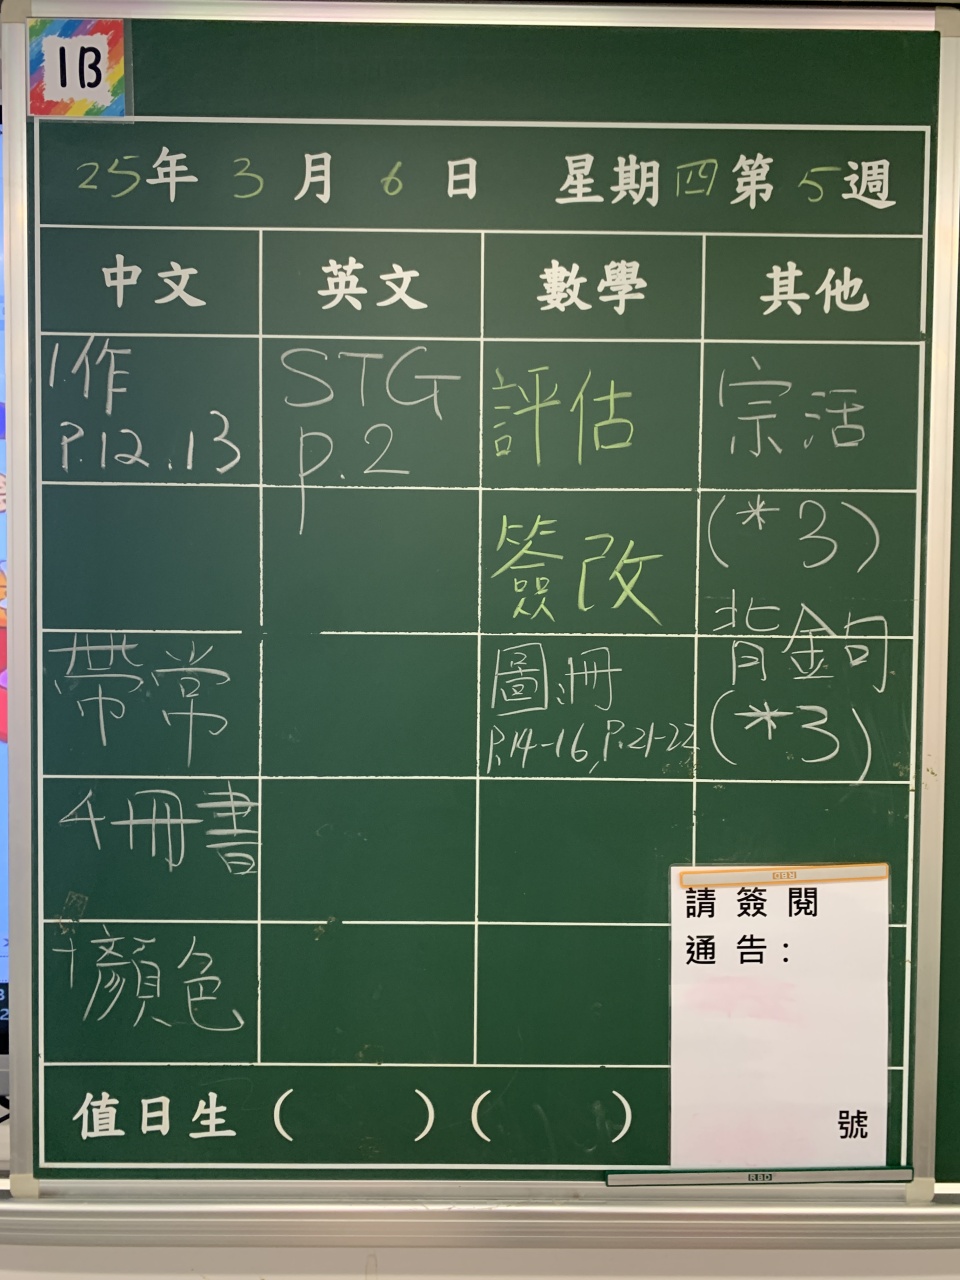 1B
25年 3月 6日 星期四第5週
中文 英文 數學 其他
1.作
P.12.13
帶常
4冊書
+顏色
STG
p.2
評估
簽改
圖冊
P.14-16, P.21-22
宗活
(*3)
背金句
(*3)
RBD
請簽閱
通告:
號
值日生( )( )
RBD